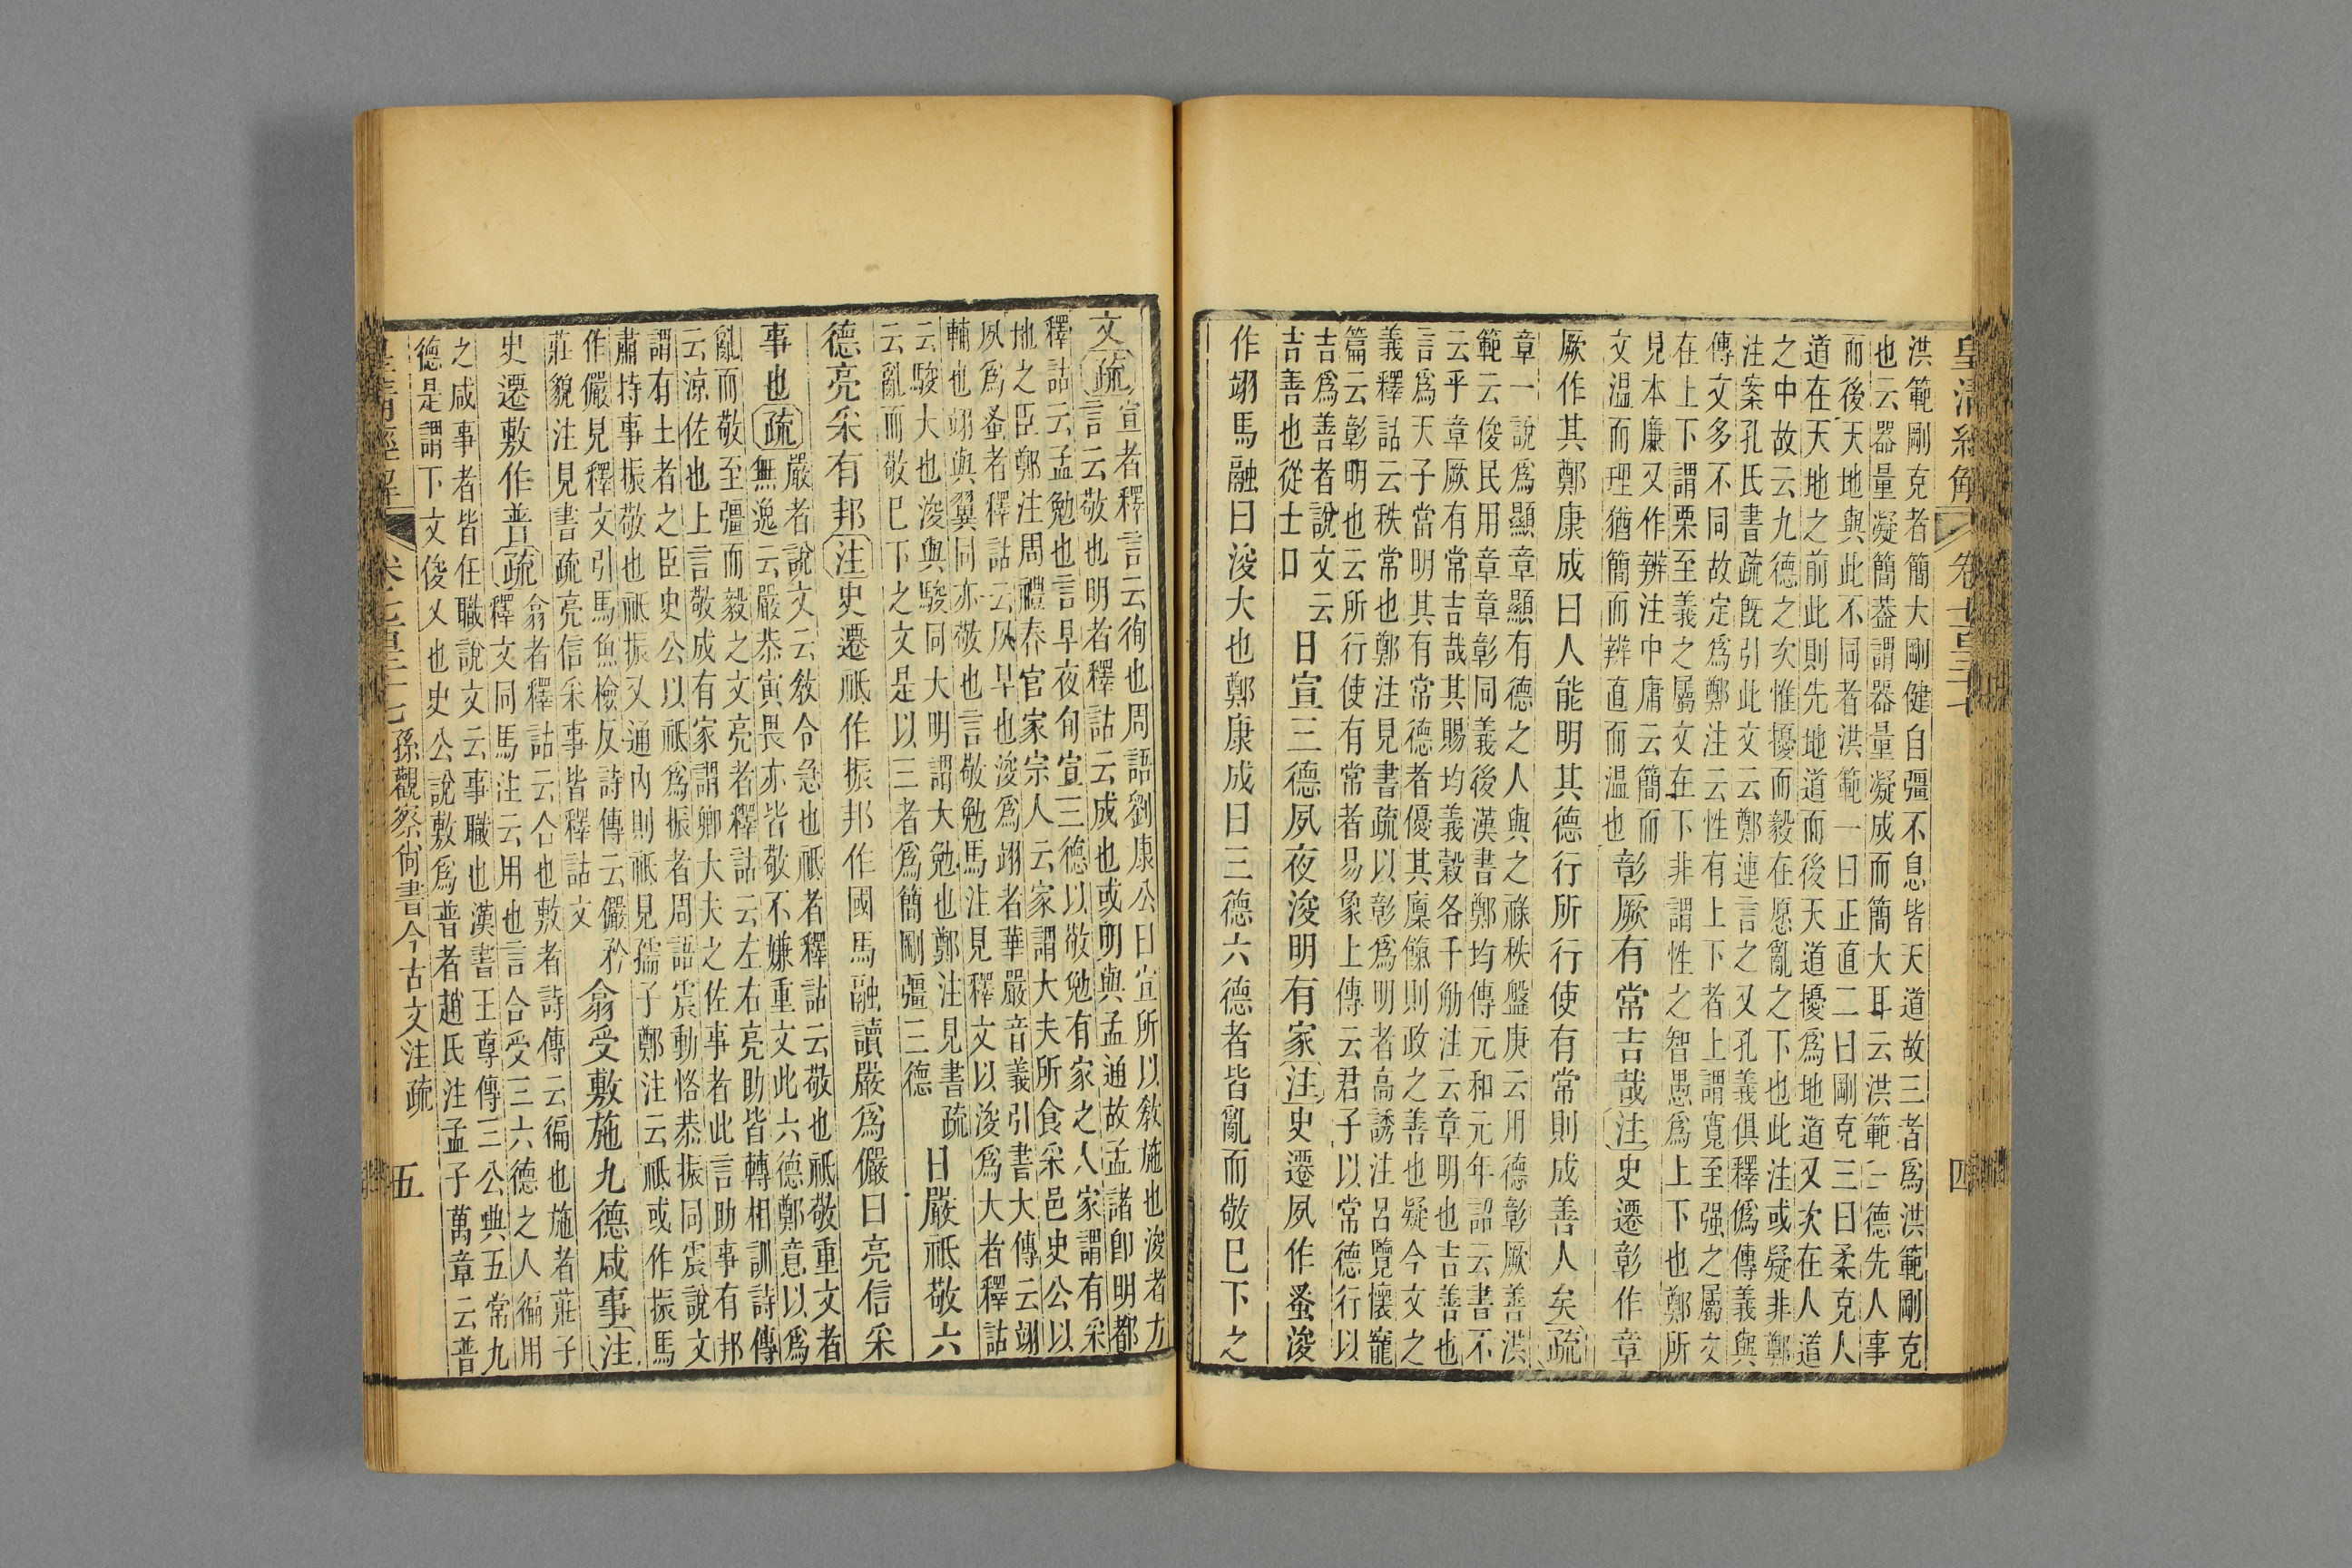 皇清經解 卷七百三十七 四
洪範剛克者簡大剛健自彊不息皆天道故三者爲洪範剛克
也云器量凝簡葢謂器量凝成而簡大耳云洪範三德先人事
而後天地與此不同者洪範一曰正直二曰剛克三曰柔克人
道在天地之前此則先地道而後天道擾爲地道又次在人道
之中故云九德之次惟擾而毅在愿亂之下也此注或疑非鄭
注案孔氏書疏旣引此文云鄭連言之又孔義俱釋僞傳義與
傳文多不同故定爲鄭注云性有上下者上謂寬至强之屬文
在上下謂栗至義之屬文在下非謂性之智愚爲上下也鄭所
見本廉又作辨注中庸云簡而
文温而理猶簡而辨直而温也
彰厥有常吉哉注史遷彰作章
厥作其鄭康成曰人能明其德行所行使有常則成善人矣疏
章一說爲顯章顯有德之人與之祿秩盤庚云用德彰厥善洪
範云俊民用章章彰同義後漢書鄭均傳元和元年詔云書不
云乎章厥有常吉哉其賜均義穀各千斛注云章明也吉善也
言爲天子當明其有常德者優其廩餼則政之善也疑今文之
義釋詁云秩常也鄭注見書疏以彰爲明者高誘注呂覽懷寵
篇云彰明也云所行使有常者易象上傳云君子以常德行以
吉爲善者說文云
吉善也從士口
日宣三德夙夜浚明有家注史遷夙作蚤浚
作翊馬融曰浚大也鄭康成曰三德六德者皆亂而敬已下之
文疏
宣者釋言云徇也周語劉康公曰宣所以敎施也浚者方
言云敬也明者釋詁云成也或明與孟通故孟諸卽明都
釋詁云孟勉也言早夜旬宣三德以敬勉有家之人家謂有采
地之臣鄭注周禮春官家宗人云家謂大夫所食采邑史公以
夙爲蚤者釋詁云夙早也浚爲翊者華嚴音義引書大傳云翊
輔也翊與翼同亦敬也言敬勉馬注見釋文以浚爲大者釋詁
云駿大也浚與駿同大明謂大勉也鄭注見書疏
云亂而敬已下之文是以三者爲簡剛彊三德
日嚴祗敬六
德亮采有邦注史遷祗作振邦作國馬融讀嚴爲儼曰亮信采
事也疏
嚴者說文云敎令急也祗者釋詁云敬也祗敬重文者
無逸云嚴恭寅畏亦皆敬不嫌重文此六德鄭意以爲
亂而敬至彊而毅之文亮者釋詁云左右亮助皆轉相訓詩傳
云涼佐也上言敬成有家謂卿大夫之佐事者此言助事有邦
謂有土者之臣史公以祗爲振者周語震動恪恭振同震說文
肅持事振敬也祗振又通內則祗見孺子鄭注云祗或作振馬
作儼見釋文引馬魚檢反詩傳云儼矜
莊貌注見書疏亮信采事皆釋詁文
翕受敷施九德咸事注
史遷敷作普疏
翕者釋詁云合也敷者詩傳云徧也施者莊子
釋文同馬注云用也言合受三六德之人徧用
之咸事者皆任職說文云事職也漢書王尊傳三公典五常九
德是謂下文俊乂也史公說敷爲普者趙氏注孟子萬章云普
皇清經解 卷七百三十七 孫觀察尚書今古文注疏 五